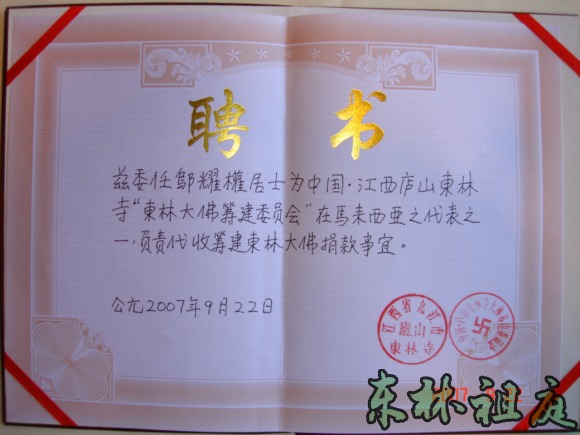 聘 书
兹委任鄔耀權居士为中国·江西庐山東林
寺“東林大佛筹建委员会”在馬来西亚之代表之
一,负责代收筹建東林大佛捐款事宜。
公元2007年9月22日
江西省九江市
廬山
東林寺
东林祖庭